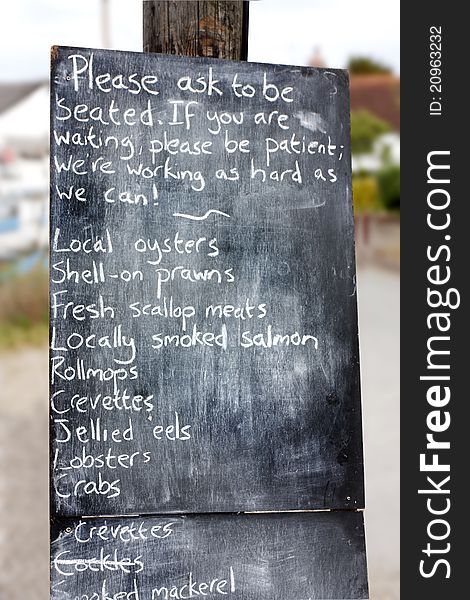 Please ask to be
seated. If you are
waiting, please be patient;
we're working as hard as
we can!
Local oysters
Shell-on prawns
Fresh scallop meats
Locally smoked salmon
Rollmops
Crevettes
Jellied eels
Lobsters
Crabs
Crevettes
Cockles
Smoked mackerel
ID 20963232
StockFreeImages.com